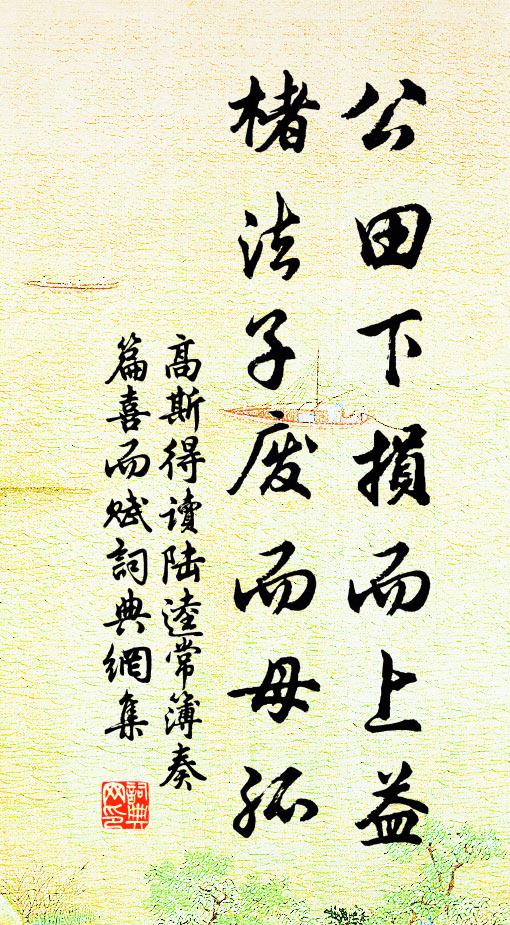 公田下損而上益
楮法子废而母孤
高斯得读陆逵常簿奏
篇喜而赋詞典網集
詞典
网印